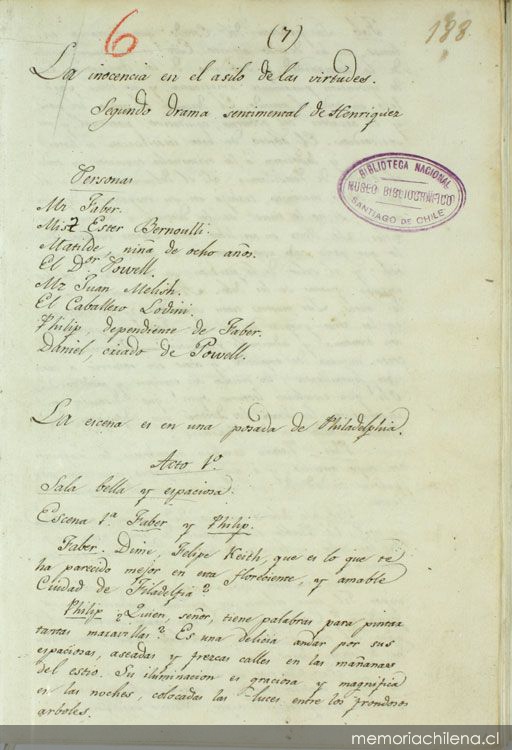 6
(7)
188
La inocencia en el asilo de las virtudes.
Segundo drama sentimental de Henriquez
BIBLIOTECA NACIONAL
MUSEO BIBLIOGRAFICO
SANTIAGO DE CHILE
Personas
Mr Faber.
Ester Bernoulli.
Matilde, niña de ocho años.
El Dor Powell.
Mr Juan Melish.
El Caballero Lodini.
Philip, dependiente de Faber.
Daniel, criado de Powell.
La escena es en una posada de Philadelphia.
Acto 1º
Sala bella y espaciosa.
Escena 1ª Faber y Philip.
Faber. Dime, Felipe Keith, que es lo que te
ha parecido mejor en esta floreciente, y amable
Ciudad de Filadelfia?
Philip ¿Quien, señor, tiene palabras para pintar
tantas maravillas? Es una delicia andar por sus
espaciosas, aseadas y frezcas calles en las mañanas
del estio. Su iluminacion es graciosa y magnifica
en las noches, colocadas las luces entre los frondosos
arboles.
memoriachilena.cl